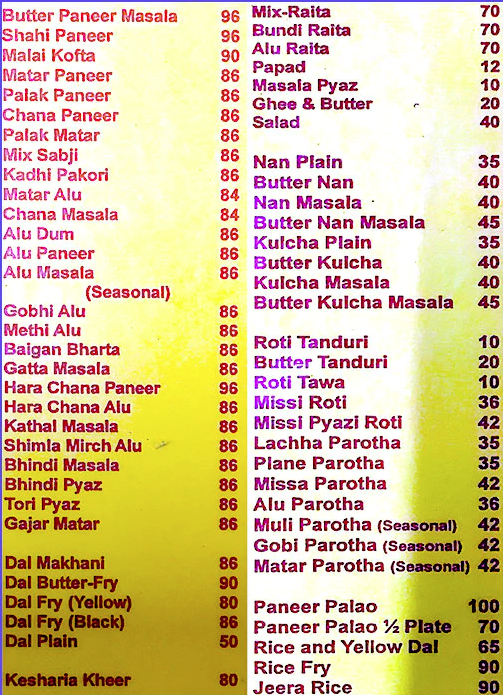 Butter Paneer Masala 96
Shahi Paneer 96
Malai Kofta 90
Matar Paneer 86
Palak Paneer 86
Chana Paneer 86
Palak Matar 86
Mix Sabji 86
Kadhi Pakori 86
Matar Alu 84
Chana Masala 84
Alu Dum 86
Alu Paneer 86
Alu Masala 86
(Seasonal)
Gobhi Alu 86
Methi Alu 86
Baigan Bharta 86
Gatta Masala 86
Hara Chana Paneer 96
Hara Chana Alu 86
Kathal Masala 86
Shimla Mirch Alu 86
Bhindi Masala 86
Bhindi Pyaz 86
Tori Pyaz 86
Gajar Matar 86
Dal Makhani 86
Dal Butter-Fry 90
Dal Fry (Yellow) 80
Dal Fry (Black) 86
Dal Plain 50
Kesharia Kheer 80
Mix-Raita 70
Bundi Raita 70
Alu Raita 70
Papad 12
Masala Pyaz 10
Ghee & Butter 20
Salad 40
Nan Plain 35
Butter Nan 40
Nan Masala 40
Butter Nan Masala 45
Kulcha Plain 35
Butter Kulcha 40
Kulcha Masala 40
Butter Kulcha Masala 45
Roti Tanduri 10
Butter Tanduri 20
Roti Tawa 10
Missi Roti 36
Missi Pyazi Roti 42
Lachha Parotha 35
Plane Parotha 35
Missa Parotha 42
Alu Parotha 36
Muli Parotha (Seasonal) 42
Gobi Parotha (Seasonal) 42
Matar Parotha (Seasonal) 42
Paneer Palao 100
Paneer Palao ½ Plate 70
Rice and Yellow Dal 65
Rice Fry 90
Jeera Rice 90